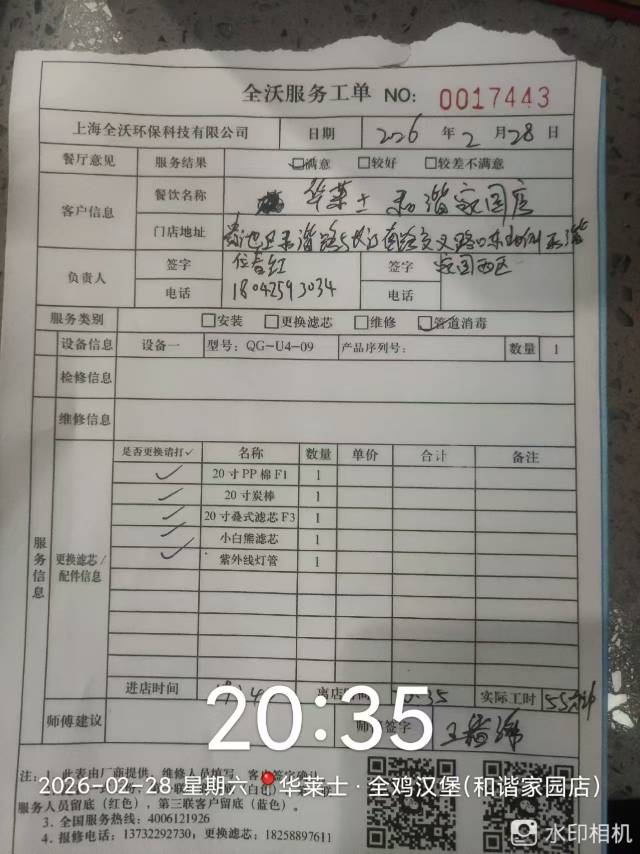 全沃服务工单 NO: 0017443
上海全沃环保科技有限公司 日期 2026 年 2 月 28 日
餐厅意见 服务结果 满意 较好 较差不满意
客户信息 餐饮名称 华莱士 和谐家园店
门店地址 和谐路与长江南路交叉路口东
家园西区
负责人 签字 签字
电话 18042593034 电话
服务类别 安装 更换滤芯 维修 管道消毒
设备信息 设备一 型号: QG-U4-09 产品序列号: 数量 1
检修信息
维修信息
服务信息
更换滤芯/配件信息
是否更换请打✓ 名称 数量 单价 合计 备注
✓ 20寸PP棉F1 1
✓ 20寸炭棒 1
✓ 20寸叠式滤芯F3 1
✓ 小白熊滤芯 1
✓ 紫外线灯管 1
进店时间 离店 35 实际工时 55分钟
师傅建议 签字
20:35
注: 此表由厂商提供，维修人员填写，客户签字确认
2026-02-28 星期六 华莱士·全鸡汉堡(和谐家园店)
服务人员留底（红色），第三联客户留底（蓝色）。
3. 全国服务热线: 4006121926
4. 报修电话: 13732292730, 更换滤芯: 18258897611
水印相机